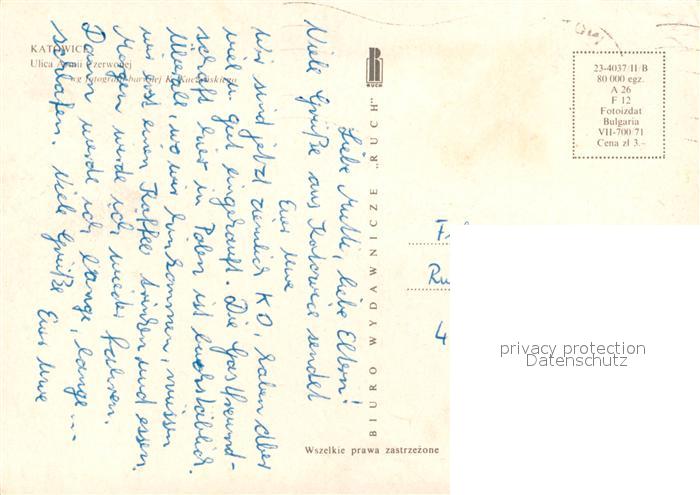 KATOWICE
Ulica Armii Czerwonej
wg fotografii barwnej K. Kaczyńskiego
RUCH
BIURO WYDAWNICZE „RUCH"
23-4037/II/B
80 000 egz.
A 26
F 12
Fotoizdat
Bulgaria
VII-700/71
Cena zł 3.-
Liebe Mutti, liebe Eltern!
Viele Grüße aus Katowice sendet
Euer Uwe
Wir sind jetzt ziemlich KO, haben aber
viel zu gut eingekauft. Die Gastfreund-
schaft hier in Polen ist buchstäblich.
Überall, wo wir hinkommen, müssen
wir erst einen Kaffee trinken und essen.
Morgen werde ich wieder fahren.
Dann werde ich lange, lange ...
schlafen. Viele Grüße Euer Uwe
Wszelkie prawa zastrzeżone
privacy protection
Datenschutz
Ru
4